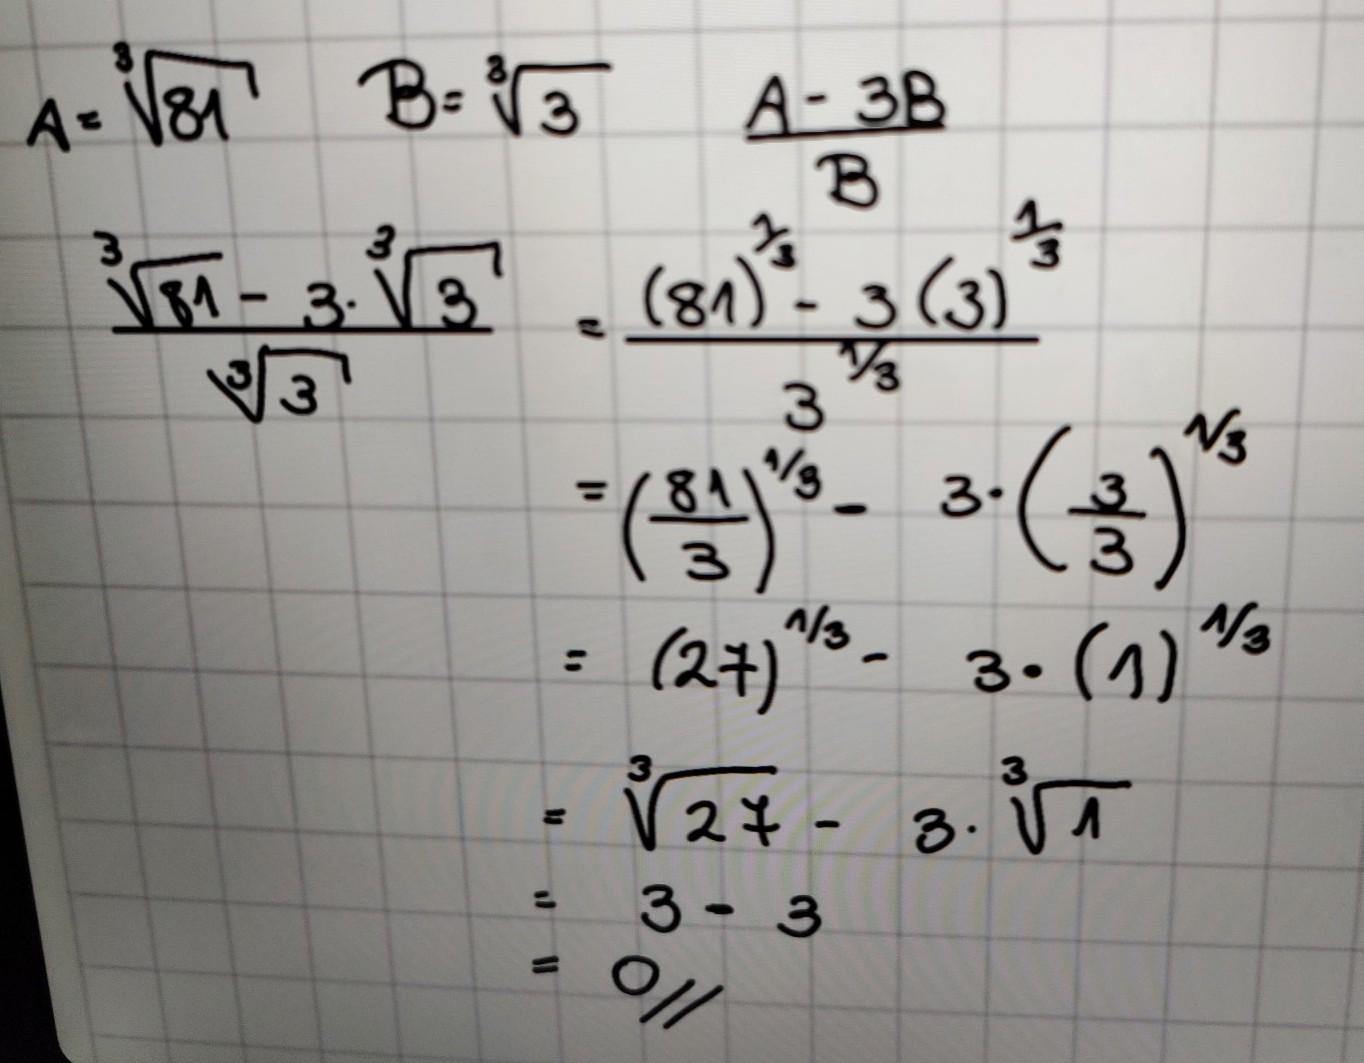 A = ∛81 B = ∛3 (A - 3B)/B
(∛81 - 3·∛3)/∛3 = ((81)^(1/3) - 3(3)^(1/3))/3^(1/3)
= (81/3)^(1/3) - 3·(3/3)^(1/3)
= (27)^(1/3) - 3·(1)^(1/3)
= ∛27 - 3·∛1
= 3 - 3
= 0//